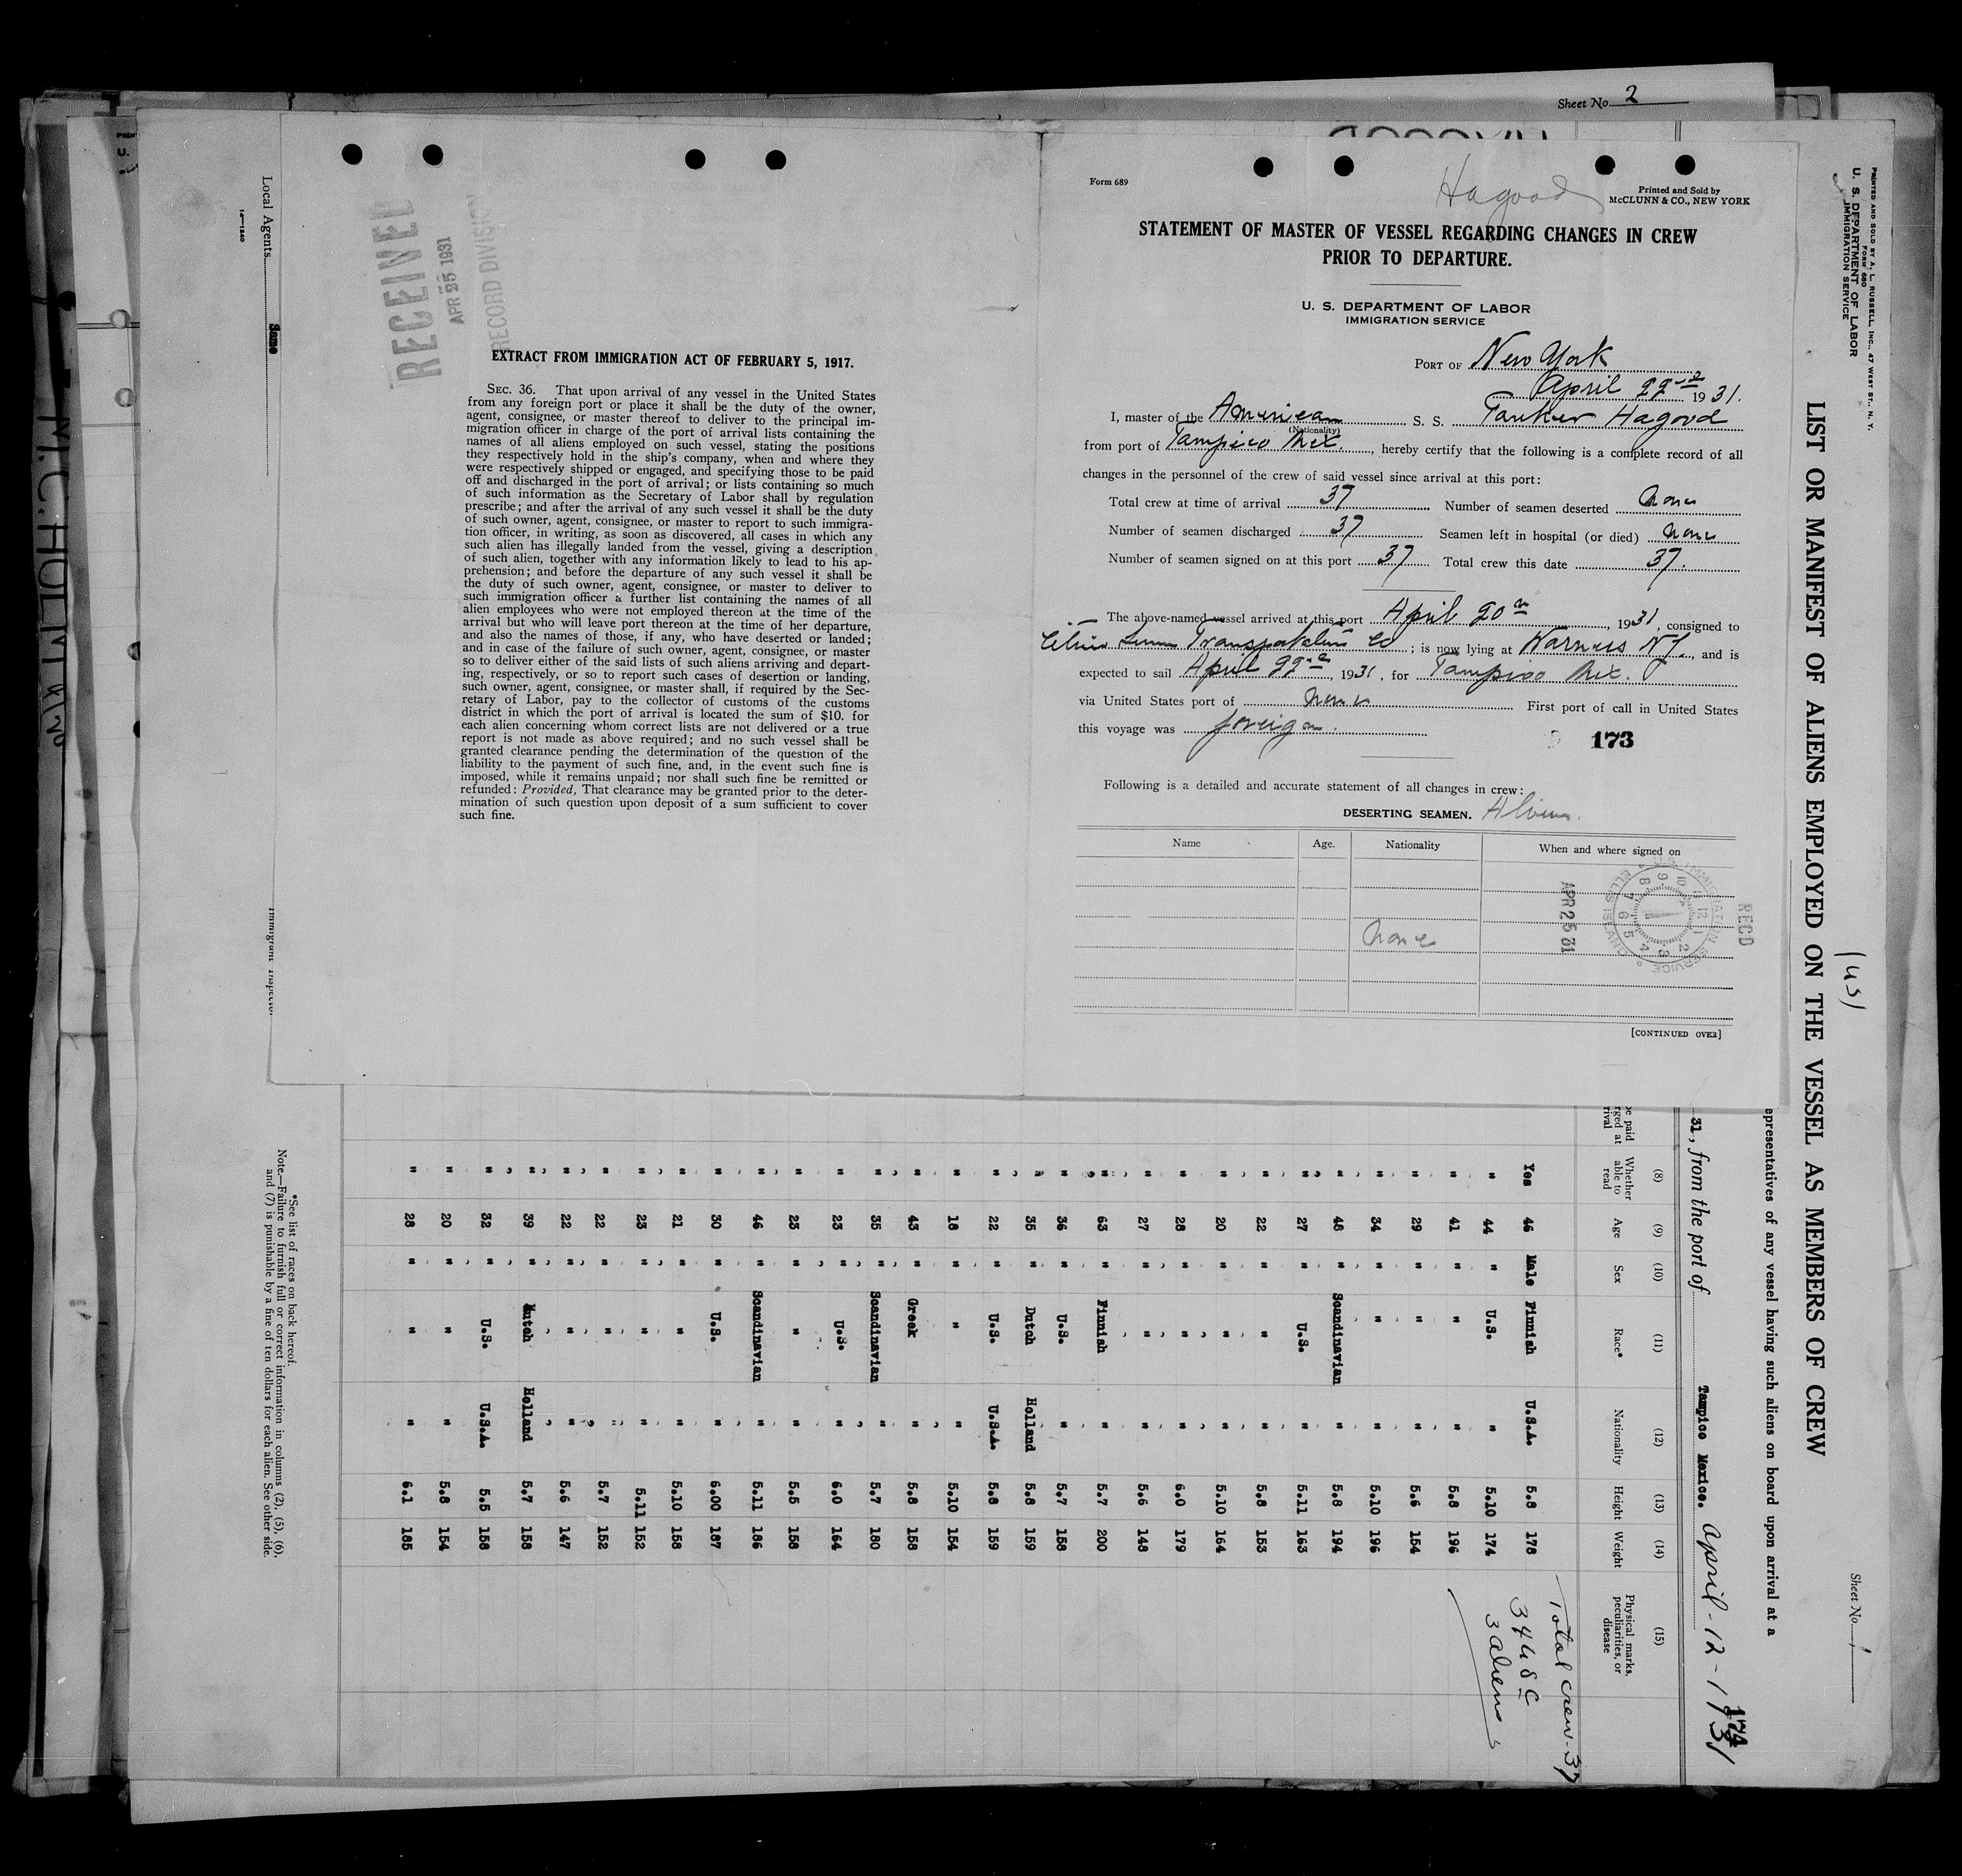 Sheet No. 2
Form 689
Hagood
Printed and Sold by
McCLUNN & CO., NEW YORK
STATEMENT OF MASTER OF VESSEL REGARDING CHANGES IN CREW
PRIOR TO DEPARTURE.
U. S. DEPARTMENT OF LABOR
IMMIGRATION SERVICE
PORT OF New York
April 22nd 1931.
I, master of the American S. S. Tanker Hagood
(Nationality)
from port of Tampico Mex., hereby certify that the following is a complete record of all
changes in the personnel of the crew of said vessel since arrival at this port:
Total crew at time of arrival 37 Number of seamen deserted None
Number of seamen discharged 37 Seamen left in hospital (or died) None
Number of seamen signed on at this port 37 Total crew this date 37.
The above-named vessel arrived at this port April 20th, 1931, consigned to
Transportation Co; is now lying at Warners N.J., and is
expected to sail April 22nd, 1931, for Tampico Mex.
via United States port of None First port of call in United States
this voyage was foreign.
173
Following is a detailed and accurate statement of all changes in crew:
DESERTING SEAMEN.
Name Age. Nationality When and where signed on
None
RECD
APR 25 31
U.S. IMMIGRATION SERVICE
ELLIS ISLAND
[CONTINUED OVER]
RECEIVED
APR 25 1931
RECORD DIVISION
EXTRACT FROM IMMIGRATION ACT OF FEBRUARY 5, 1917.
SEC. 36. That upon arrival of any vessel in the United States
from any foreign port or place it shall be the duty of the owner,
agent, consignee, or master thereof to deliver to the principal im-
migration officer in charge of the port of arrival lists containing the
names of all aliens employed on such vessel, stating the positions
they respectively hold in the ship's company, when and where they
were respectively shipped or engaged, and specifying those to be paid
off and discharged in the port of arrival; or lists containing so much
of such information as the Secretary of Labor shall by regulation
prescribe; and after the arrival of any such vessel it shall be the duty
of such owner, agent, consignee, or master to report to such immigra-
tion officer, in writing, as soon as discovered, all cases in which any
such alien has illegally landed from the vessel, giving a description
of such alien, together with any information likely to lead to his ap-
prehension; and before the departure of any such vessel it shall be
the duty of such owner, agent, consignee, or master to deliver to
such immigration officer a further list containing the names of all
alien employees who were not employed thereon at the time of the
arrival but who will leave port thereon at the time of her departure,
and also the names of those, if any, who have deserted or landed;
and in case of the failure of such owner, agent, consignee, or master
so to deliver either of the said lists of such aliens arriving and depart-
ing, respectively, or so to report such cases of desertion or landing,
such owner, agent, consignee, or master shall, if required by the Sec-
retary of Labor, pay to the collector of customs of the customs
district in which the port of arrival is located the sum of $10. for
each alien concerning whom correct lists are not delivered or a true
report is not made as above required; and no such vessel shall be
granted clearance pending the determination of the question of the
liability to the payment of such fine, and, in the event such fine is
imposed, while it remains unpaid; nor shall such fine be remitted or
refunded: Provided, That clearance may be granted prior to the deter-
mination of such question upon deposit of a sum sufficient to cover
such fine.
PRINTED AND SOLD BY A. L. RUSSELL, INC., 47 WEST ST., N. Y.
FORM 680
U. S. DEPARTMENT OF LABOR
IMMIGRATION SERVICE
Sheet No. 1
LIST OR MANIFEST OF ALIENS EMPLOYED ON THE VESSEL AS MEMBERS OF CREW
epresentatives of any vessel having such aliens on board upon arrival at a
31, from the port of Tampico Mexico. April-12-1931
174
(8) (9) (10) (11) (12) (13) (14) (15)
Whether able to read Age Sex Race* Nationality Height Weight Physical marks, peculiarities, or disease
Yes 46 Male Finnish U.S.A. 5.8 178
" 44 " U.S. " 5.10 174
" 41 " " " 5.8 196
" 29 " " " 5.6 154
" 34 " " " 5.10 196
" 48 " Scandinavian " 5.8 194
" 27 " U.S. " 5.11 163
" 22 " " " 5.8 153
" 20 " " " 5.10 164
" 28 " " " 6.0 179
" 27 " " " 5.6 148
" 63 " Finnish " 5.7 200
" 36 " U.S. " 5.7 158
" 35 " Dutch Holland 5.8 159
" 22 " U.S. U.S.A. 5.8 159
" 18 " " " 5.10 154
" 43 " Greek " 5.8 158
" 35 " Scandinavian " 5.7 180
" 23 " U.S. " 6.0 164
" 23 " " " 5.5 158
" 46 " Scandinavian " 5.11 186
" 30 " U.S. " 6.00 187
" 21 " " " 5.10 158
" 23 " " " 5.11 152
" 22 " " " 5.7 152
" 22 " " " 5.6 147
" 39 " Dutch Holland 5.7 158
" 32 " U.S. U.S.A. 5.5 158
" 20 " " " 5.8 154
" 28 " " " 6.1 185
Total crew-37
34 USC
3 Aliens
*See list of races on back hereof.
Note.—Failure to furnish full or correct information in columns (2), (5), (6),
and (7) is punishable by a fine of ten dollars for each alien. See other side.
Local Agents Same
14—1240
Immigrant Inspector.